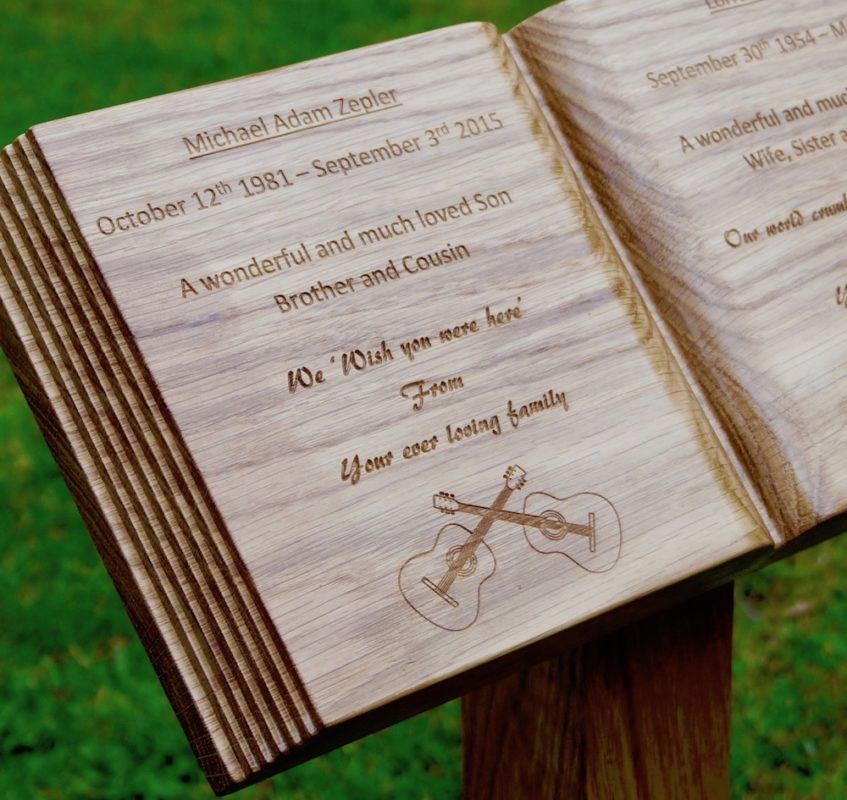 Michael Adam Zepler
October 12th 1981 – September 3rd 2015
A wonderful and much loved Son
Brother and Cousin
We 'Wish you were here'
From
Your ever loving family
September 30th 1954 –
A wonderful and much
Wife, Sister
Our world